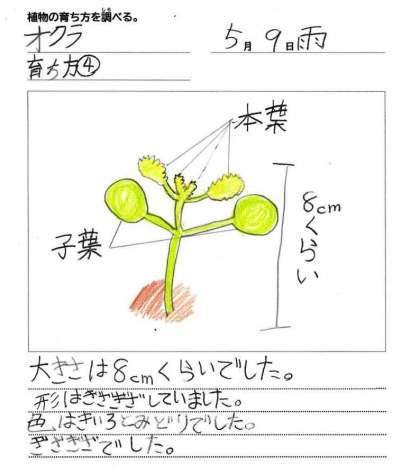 植物の育ち方を調べる。
オクラ
5月9日雨
育ち方④
本葉
8cmくらい
子葉
大きさは8cmくらいでした。
形はぎざぎざしていました。
色はきいろとみどりでした。
ぎざぎざでした。